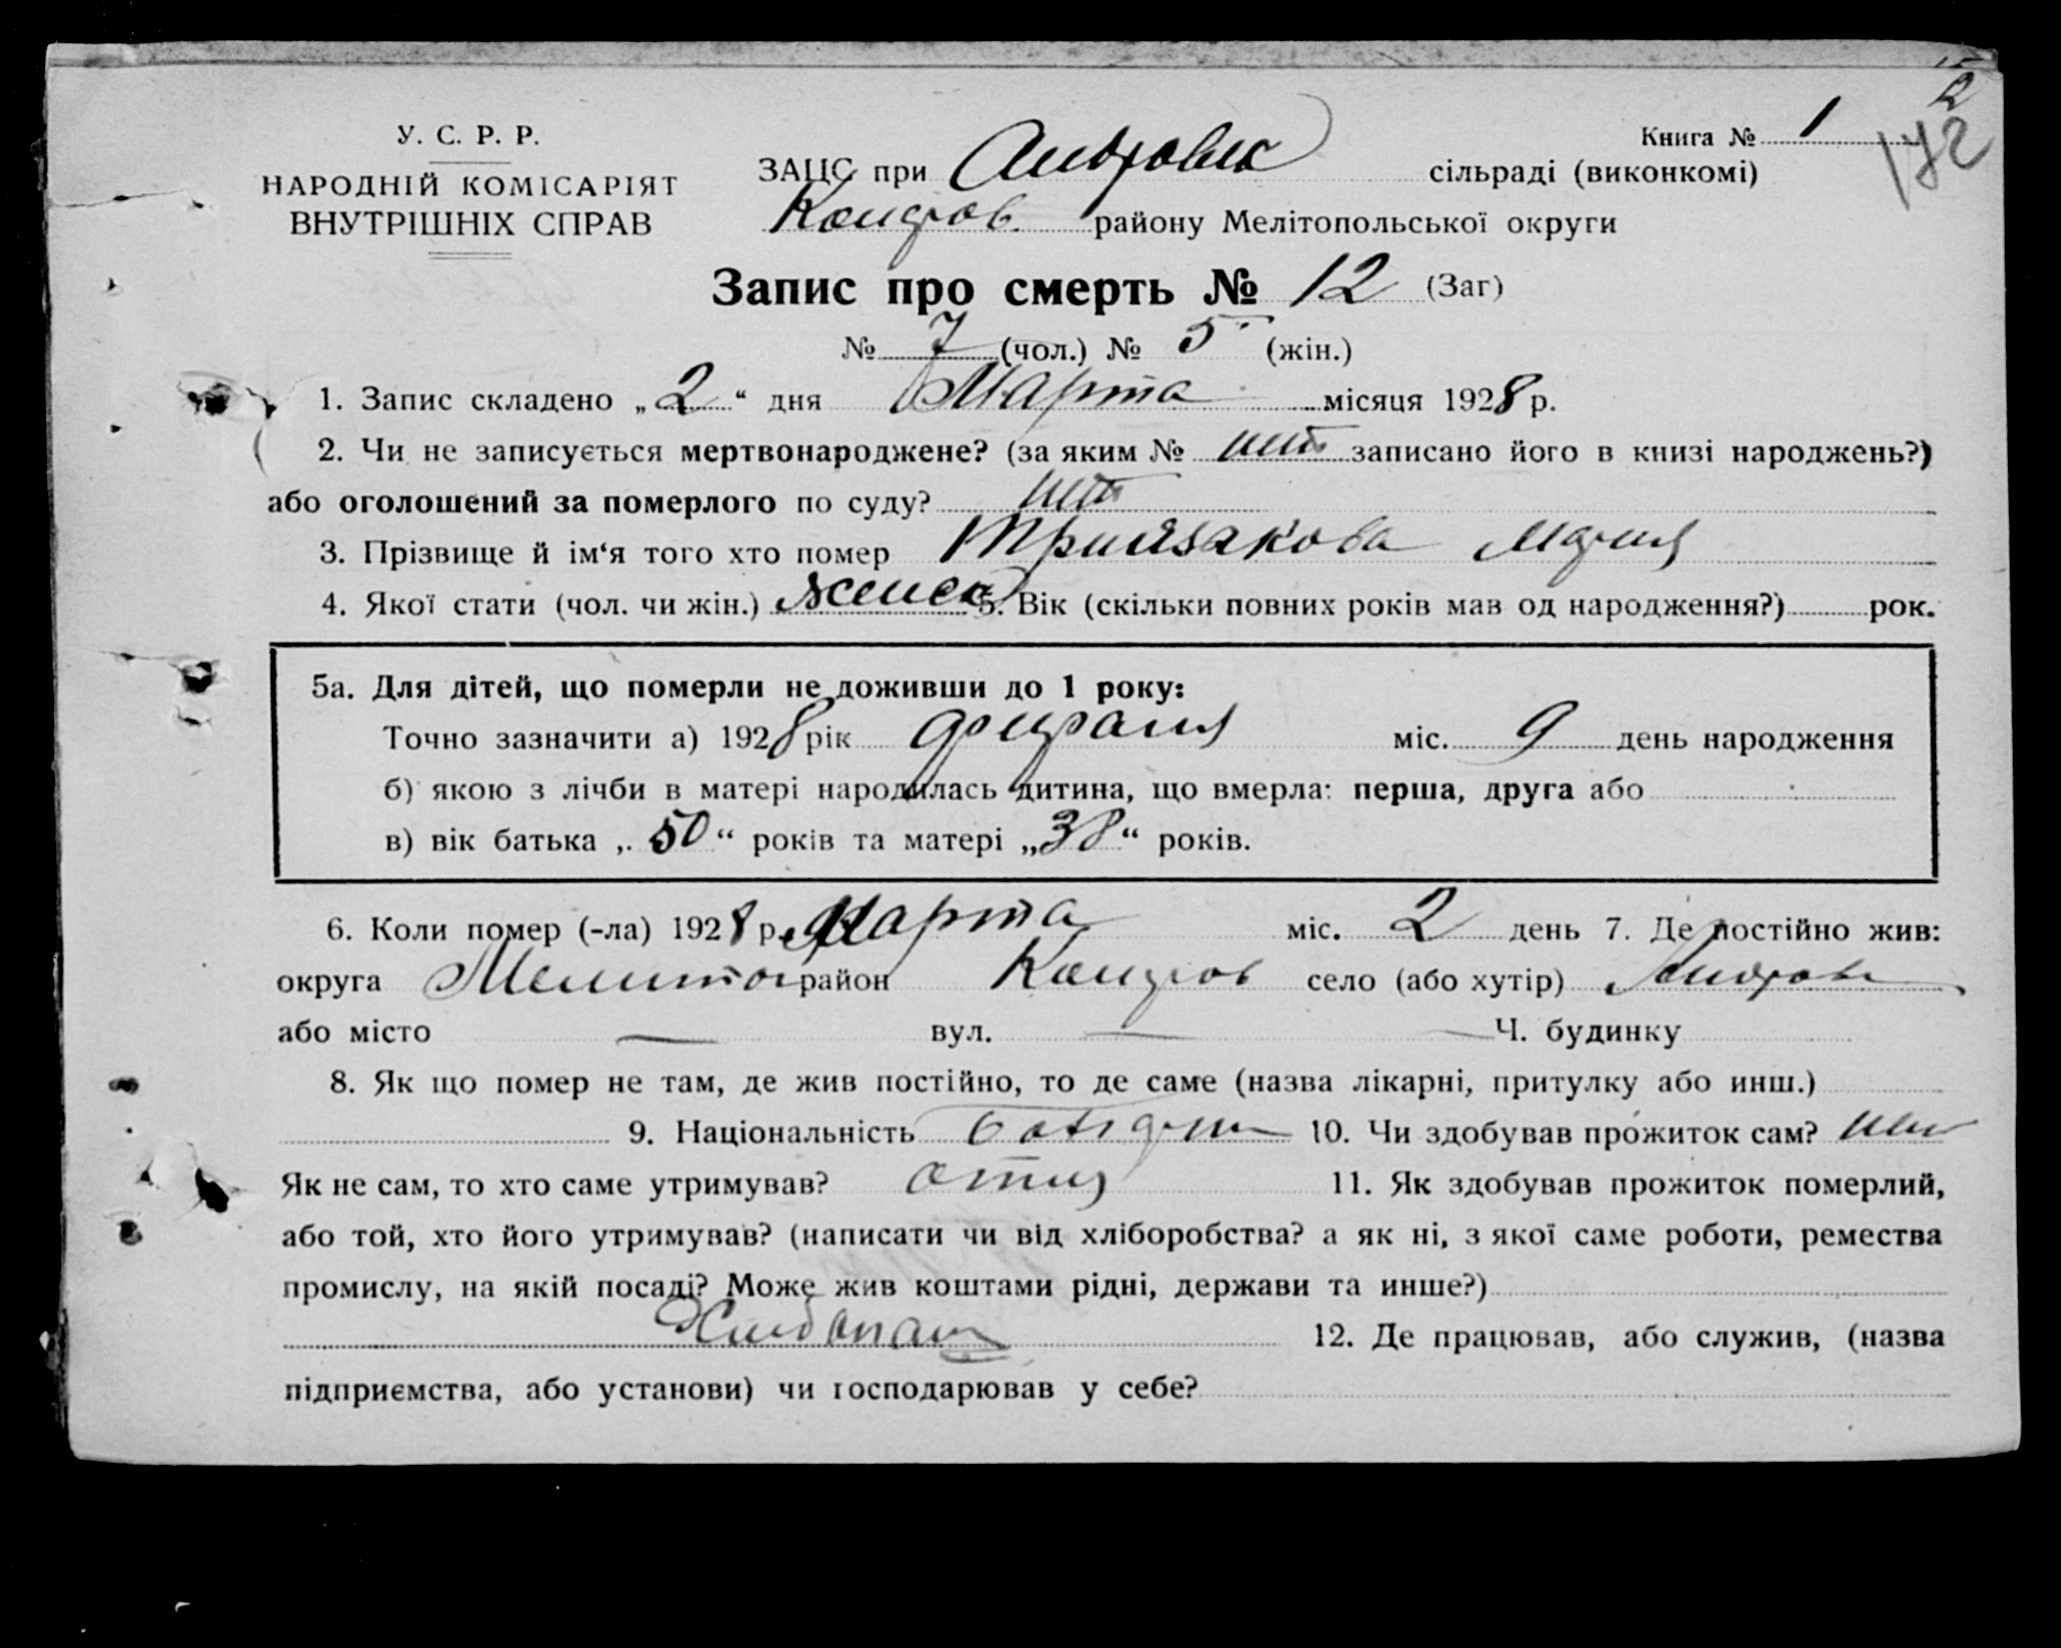 2
172
У. С. Р. Р.
НАРОДНІЙ КОМІСАРІЯТ
ВНУТРІШНІХ СПРАВ
Книга № 1
ЗАЦС при Андровск сільраді (виконкомі)
району Мелітопольської округи
Запис про смерть № 12 (Заг)
№ 7 (чол.) № 5 (жін.)
1. Запис складено „2“ дня Марта місяця 1928 р.
2. Чи не записується мертвонароджене? (за яким № нет записано його в книзі народжень?)
або оголошений за померлого по суду? нет
3. Прізвище й ім‘я того хто помер Мария
4. Якої стати (чол. чи жін.) женск 5. Вік (скільки повних років мав од народження?) рок.
5а. Для дітей, що померли не доживши до 1 року:
Точно зазначити а) 1928 рік февраля міс. 9 день народження
б) якою з лічби в матері народилась дитина, що вмерла: перша, друга або
в) вік батька „50“ років та матері „38“ років.
6. Коли помер (-ла) 1928 р. Марта міс. 2 день 7. Де постійно жив:
округа Мелитоп район село (або хутір) Андровк
або місто — вул. — — Ч. будинку
8. Як що помер не там, де жив постійно, то де саме (назва лікарні, притулку або инш.)
9. Національність 10. Чи здобував прожиток сам? нет
Як не сам, то хто саме утримував? отец 11. Як здобував прожиток померлий,
або той, хто його утримував? (написати чи від хліборобства? а як ні, з якої саме роботи, ремества
промислу, на якій посаді? Може жив коштами рідні, держави та инше?)
Хлебопаш 12. Де працював, або служив, (назва
підприємства, або установи) чи господарював у себе?